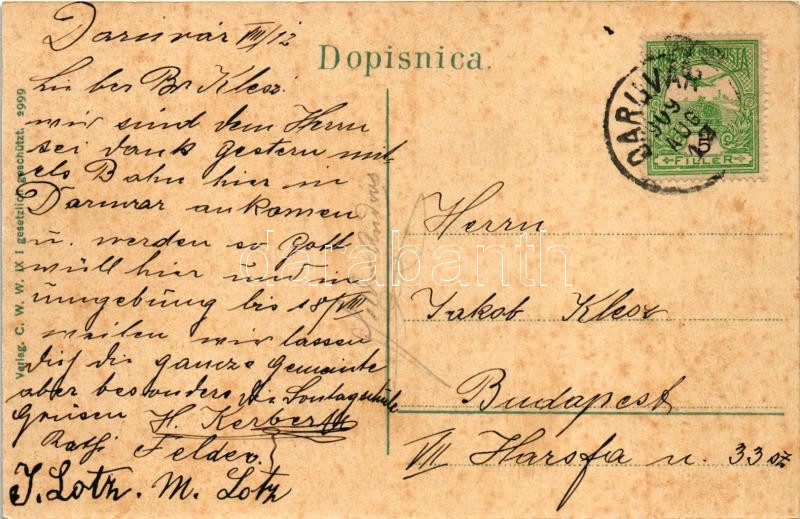 Daruvár VIII/12
Dopisnica.
Lieber Br Klesz!
wir sind dem Herrn
sei dank gestern mit-
els Bahn hier in
Daruvar ankomen
u. werden so Gott
will hier und in
umgebung bis 18/VIII
weilen wir lassen
dich die ganze gemeinte
aber besonders die Sontagschule
grüsen H. Kerber
Kathi Felder
J. Lotz. M. Lotz
Verlag. C. W. W. IX I gesetzlich geschützt. 2999
DARUVÁR
909 AUG
FILLÉR
Herrn
Jakob Klesz
Budapest
VII Harsfa u. 33 sz
darabanth